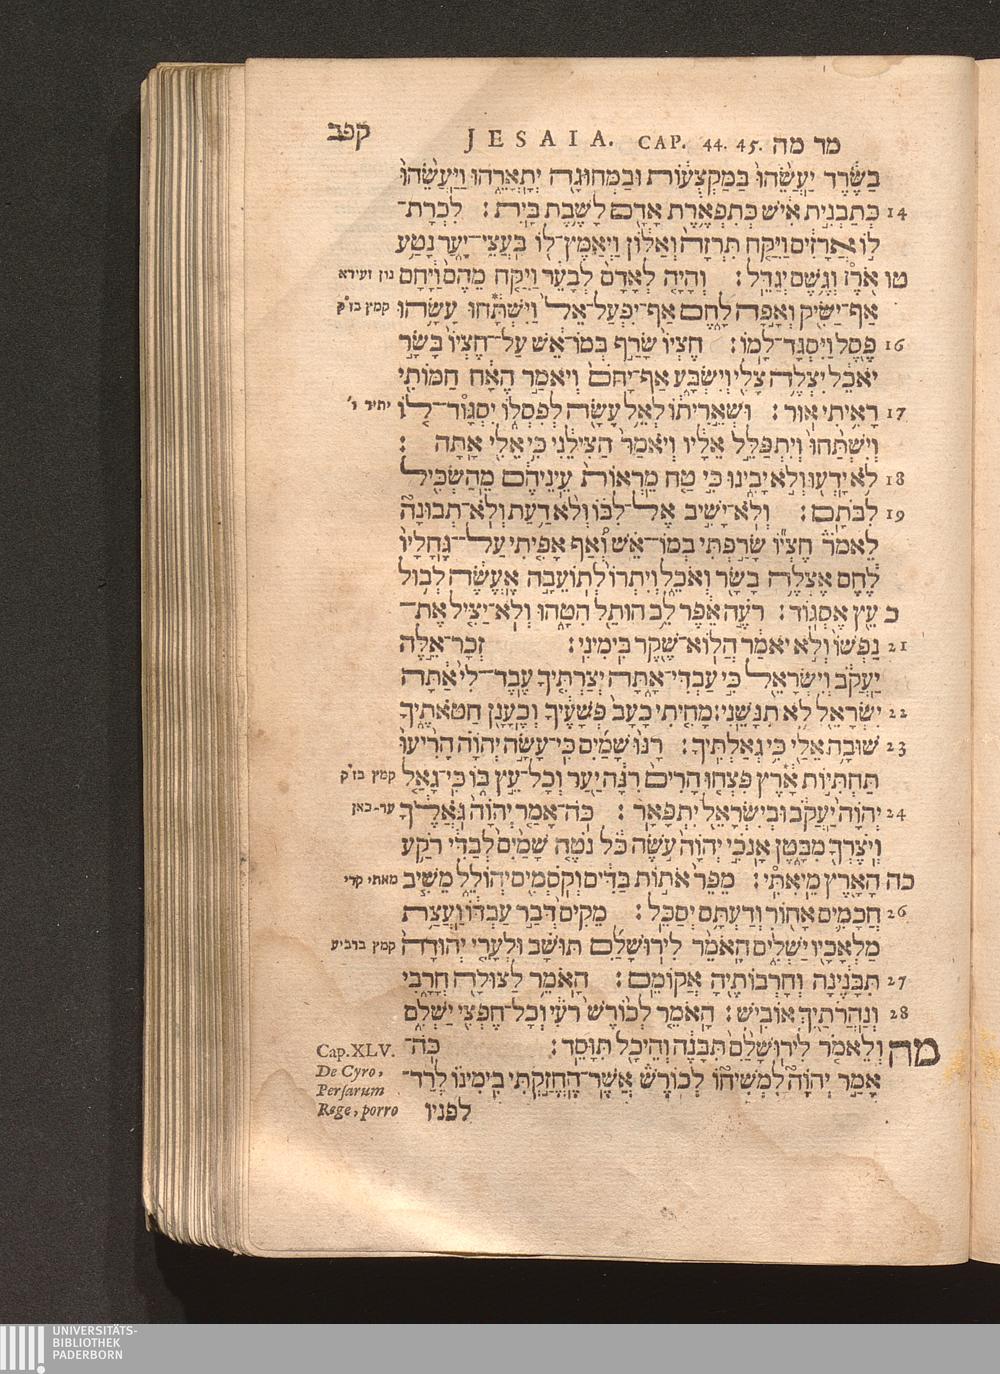 קפב JESAIA. CAP. 44. 45. מד מה
בַשֶּׂרֶד יַעֲשֵׂהוּ בַּמַּקְצֻעוֹת וּבַמְּחוּגָה יְתָאֳרֵהוּ וַיַּעֲשֵׂהוּ
14 כְּתַבְנִית אִישׁ כְּתִפְאֶרֶת אָדָם לָשֶׁבֶת בָּיִת׃ לִכְרָת־
לוֹ אֲרָזִים וַיִּקַּח תִּרְזָה וְאַלּוֹן וַיְאַמֶּץ־לוֹ בַּעֲצֵי־יָעַר נָטַע
טו אֹרֶן וְגֶשֶׁם יְגַדֵּל׃ וְהָיָה לְאָדָם לְבָעֵר וַיִּקַּח מֵהֶם וַיָּחָם נון זעירא
אַף־יַשִּׂיק וְאָפָה לָחֶם אַף־יִפְעַל־אֵל וַיִּשְׁתָּחוּ עָשָׂהוּ קמץ בז״ק
16 פֶסֶל וַיִּסְגָּד־לָמוֹ׃ חֶצְיוֹ שָׂרַף בְּמוֹ־אֵשׁ עַל־חֶצְיוֹ בָּשָׂר
יֹאכֵל יִצְלֶה צָלִי וְיִשְׂבָּע אַף־יָחֹם וְיֹאמַר הֶאָח חַמּוֹתִי
17 רָאִיתִי אוּר׃ וּשְׁאֵרִיתוֹ לְאֵל עָשָׂה לְפִסְלוֹ יִסְגּוֹד־לוֹ יתיר ו׳
וְיִשְׁתַּחוּ וְיִתְפַּלֵּל אֵלָיו וְיֹאמַר הַצִּילֵנִי כִּי אֵלִי אָתָּה׃
18 לֹא יָדְעוּ וְלֹא יָבִינוּ כִּי טַח מֵרְאוֹת עֵינֵיהֶם מֵהַשְׂכִּיל
19 לִבֹּתָם׃ וְלֹא־יָשִׁיב אֶל־לִבּוֹ וְלֹא דַעַת וְלֹא־תְבוּנָה
לֵאמֹר חֶצְיוֹ שָׂרַפְתִּי בְמוֹ־אֵשׁ וְאַף אָפִיתִי עַל־גֶּחָלָיו
לֶחֶם אֶצְלֶה בָשָׂר וְאֹכֵל וְיִתְרוֹ לְתוֹעֵבָה אֶעֱשֶׂה לְבוּל
כ עֵץ אֶסְגּוֹד׃ רֹעֶה אֵפֶר לֵב הוּתַל הִטָּהוּ וְלֹא־יַצִּיל אֶת־
21 נַפְשׁוֹ וְלֹא יֹאמַר הֲלוֹא שֶׁקֶר בִּימִינִי׃ זְכָר־אֵלֶּה
יַעֲקֹב וְיִשְׂרָאֵל כִּי עַבְדִּי־אָתָּה יְצַרְתִּיךָ עֶבֶד־לִי אַתָּה
22 יִשְׂרָאֵל לֹא תִנָּשֵׁנִי׃ מָחִיתִי כָעָב פְּשָׁעֶיךָ וְכֶעָנָן חַטֹּאתֶיךָ
23 שׁוּבָה אֵלַי כִּי גְאַלְתִּיךָ׃ רָנּוּ שָׁמַיִם כִּי־עָשָׂה יְהוָה הָרִיעוּ
תַּחְתִּיּוֹת אָרֶץ פִּצְחוּ הָרִים רִנָּה יַעַר וְכָל־עֵץ בּוֹ כִּי־גָאַל קמץ בז״ק
24 יְהוָה יַעֲקֹב וּבְיִשְׂרָאֵל יִתְפָּאָר׃ כֹּה־אָמַר יְהוָה גֹּאֲלֶךָ עד־כאן
וְיֹצֶרְךָ מִבָּטֶן אָנֹכִי יְהוָה עֹשֶׂה כֹּל נֹטֶה שָׁמַיִם לְבַדִּי רֹקַע
כה הָאָרֶץ מֵיאִתִּי׃ מֵפֵר אֹתוֹת בַּדִּים וְקֹסְמִים יְהוֹלֵל מֵשִׁיב מאתי קרי
26 חֲכָמִים אָחוֹר וְדַעְתָּם יְסַכֵּל׃ מֵקִים דְּבַר עַבְדּוֹ וַעֲצַת
מַלְאָכָיו יַשְׁלִים הָאֹמֵר לִירוּשָׁלִַם תּוּשָׁב וּלְעָרֵי יְהוּדָה קמץ ברביע
27 תִּבָּנֶינָה וְחָרְבוֹתֶיהָ אֲקוֹמֵם׃ הָאֹמֵר לַצּוּלָה חֳרָבִי
28 וְנַהֲרֹתַיִךְ אוֹבִישׁ׃ הָאֹמֵר לְכוֹרֶשׁ רֹעִי וְכָל־חֶפְצִי יַשְׁלִם
מה וְלֵאמֹר לִירוּשָׁלִַם תִּבָּנֶה וְהֵיכָל תִּוָּסֵד׃ כֹּה־
אָמַר יְהוָה לִמְשִׁיחוֹ לְכוֹרֶשׁ אֲשֶׁר־הֶחֱזַקְתִּי בִימִינוֹ לְרַד־
לפניו
Cap. XLV.
De Cyro,
Persarum
Rege, porro
UNIVERSITÄTS-
BIBLIOTHEK
PADERBORN